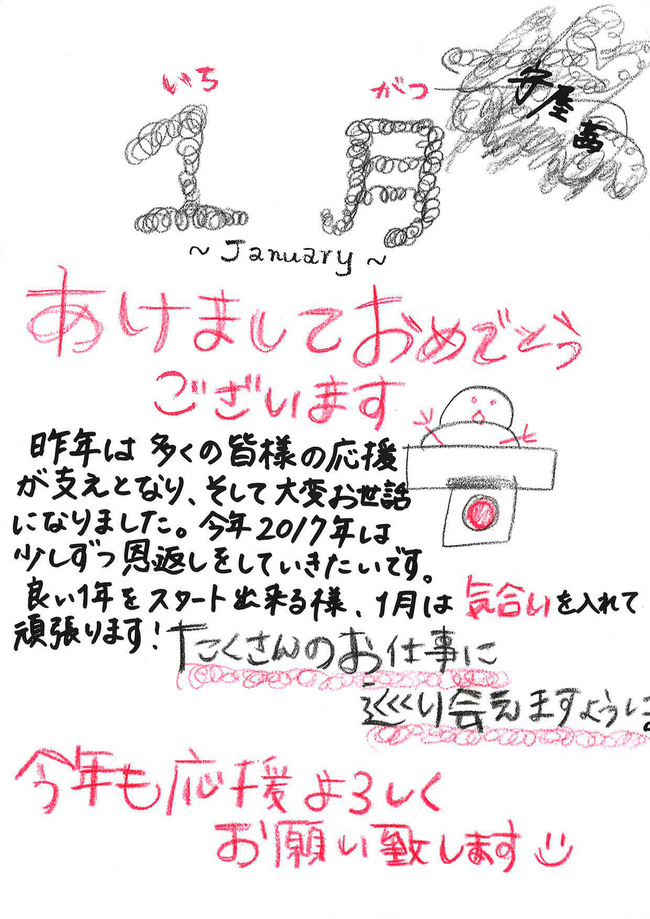 いち がつ
1月
安屋茜
~January~
あけましておめでとう
ございます
昨年は多くの皆様の応援
が支えとなり、そして大変お世話
になりました。今年2017年は
少しずつ恩返しをしていきたいです。
良い1年をスタート出来る様、1月は気合いを入れて
頑張ります!
たくさんのお仕事に
巡り会えますように。
今年も応援よろしく
お願い致します